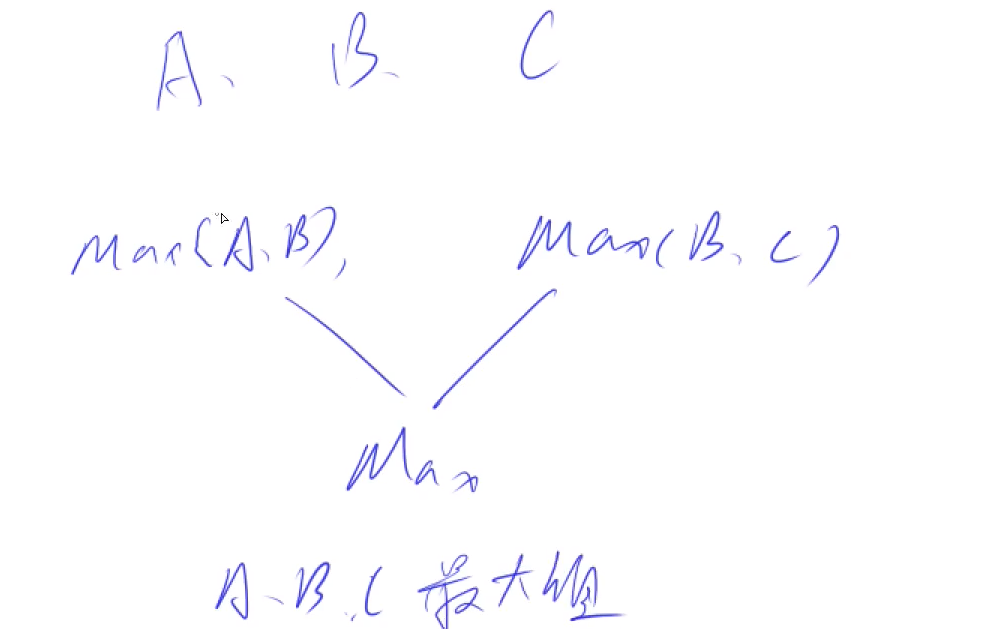 A、B、C
Max(A、B), Max(B、C)
Max
A、B、C 最大值